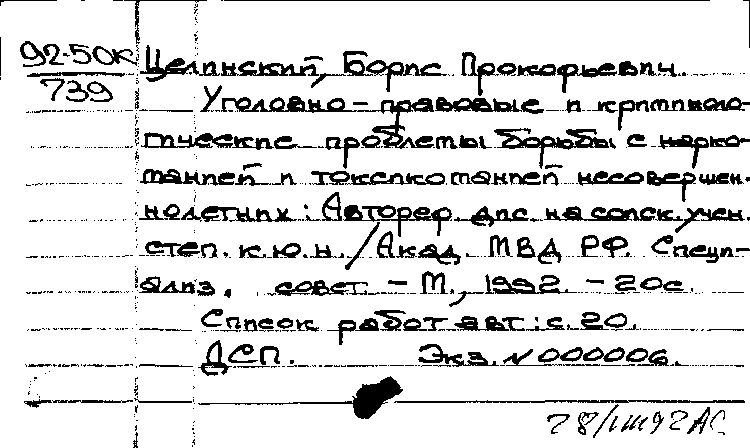 92-50К Целинский, Борис Прокофьевич.
739
Уголовно-правовые и криминоло-
гические проблемы борьбы с нарко-
манией и токсикоманией несовершен-
нолетних: Автореф. дис. на соиск. учен.
степ. к.ю.н./Акад. МВД РФ. Специ-
ализ. совет. - М., 1992. - 20с.
Список работ авт.: с. 20.
ДСП. Экз. N 000006.